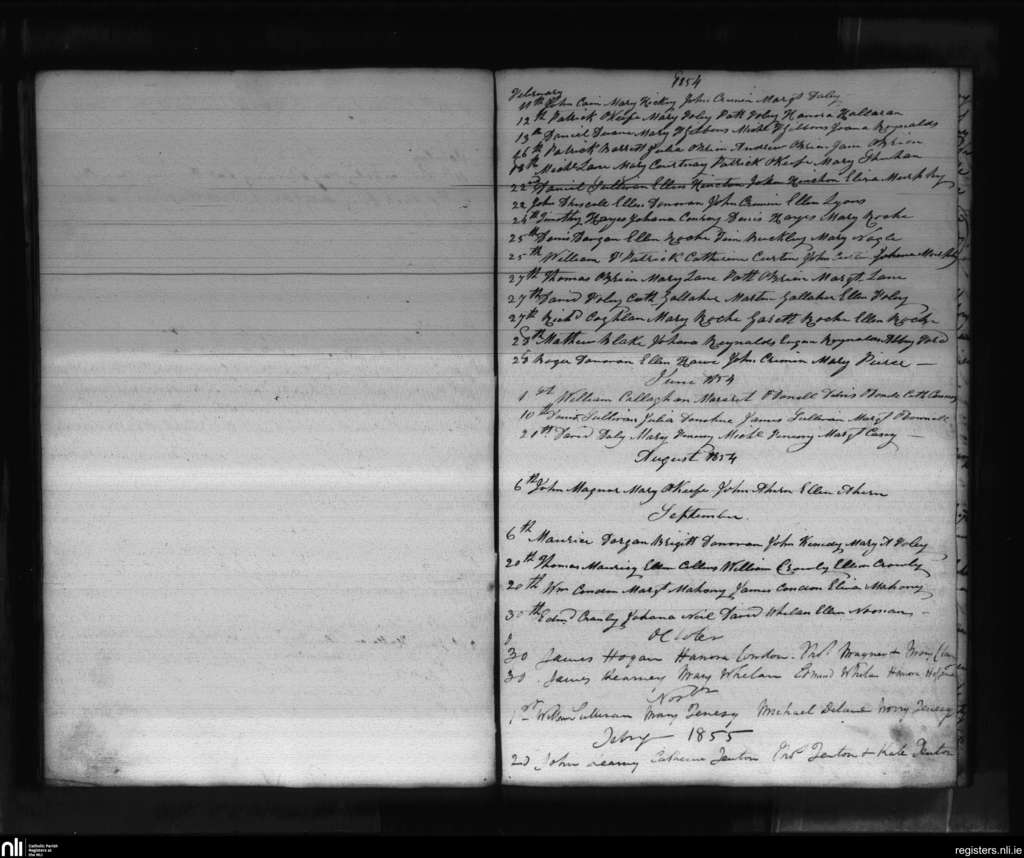 1854
February
11th John Cain Mary Hickey John Crimin Margt Daly
12th Patrick OKeefe Mary Foley Patt Foley Hanora Hallaran
13th Daniel Duane Mary FGibbons Michl FGibbons Joana Reynalds
16th Patrick Barrett Julia OBrien Andrew OBrien Jane OBrien
18th Michl Lane Mary Courtnay Patrick OKeefe Mary
22nd Daniel Sullivan Ellen Hinchon John Hinchon Eliza Murphy
22 John Driscoll Ellen Donovan John Crimin Ellen Lyons
24th Timothy Hayes Johana Conroy Denis Hayes Mary Roche
25th Denis Dangan Ellen Roche Tim Buckley Mary Nagle
25th William FPatrick Catherine Curtin John Curtin Johana Murphy
27th Thomas OBrien Mary Lane Patt OBrien Margt Lane
27th David Foley Cath Gallaher Martin Gallaher Ellen Foley
27th Richd Coghlan Mary Roche Garett Roche Ellen Roche
28th Mathew Blake Johana Reynalds Eugen Reynalds Abby Ford
28 Roger Donovan Ellen John Crimin Mary Pierce —
June 1854
1st William Callaghan Margret ODonell Denis Cath
10th David Sullivan Julia Donohue James Sullivan Margt ODonnell
21th David Daly Mary Michl Margt Casey —
August 1854
6th John Magner Mary OKeefe John Ahern Ellen Ahern
September
6th Maurice Dorgan Brigitt Donovan John Kenedy Margt Foley
20th Thomas Ellen Collins William Crowly Ellen Crowly
20th Wm Condon Margt Mahony James Condon Eliza Mahony
30th Edmd Crowly Johana Neil David Whelan Ellen Noonan —
October
30 James Hogan Hanora Condon. Thos Magner +
30 James Kearney Mary Whelan Edmund Whelan Hanora
Novbr
1st William Sullivan Mary Michael
Febry 1855
2d John Leamy Catherine Fenton Thos Fenton + Kate Fenton
nli
Catholic Parish
Registers at
the NLI
registers.nli.ie